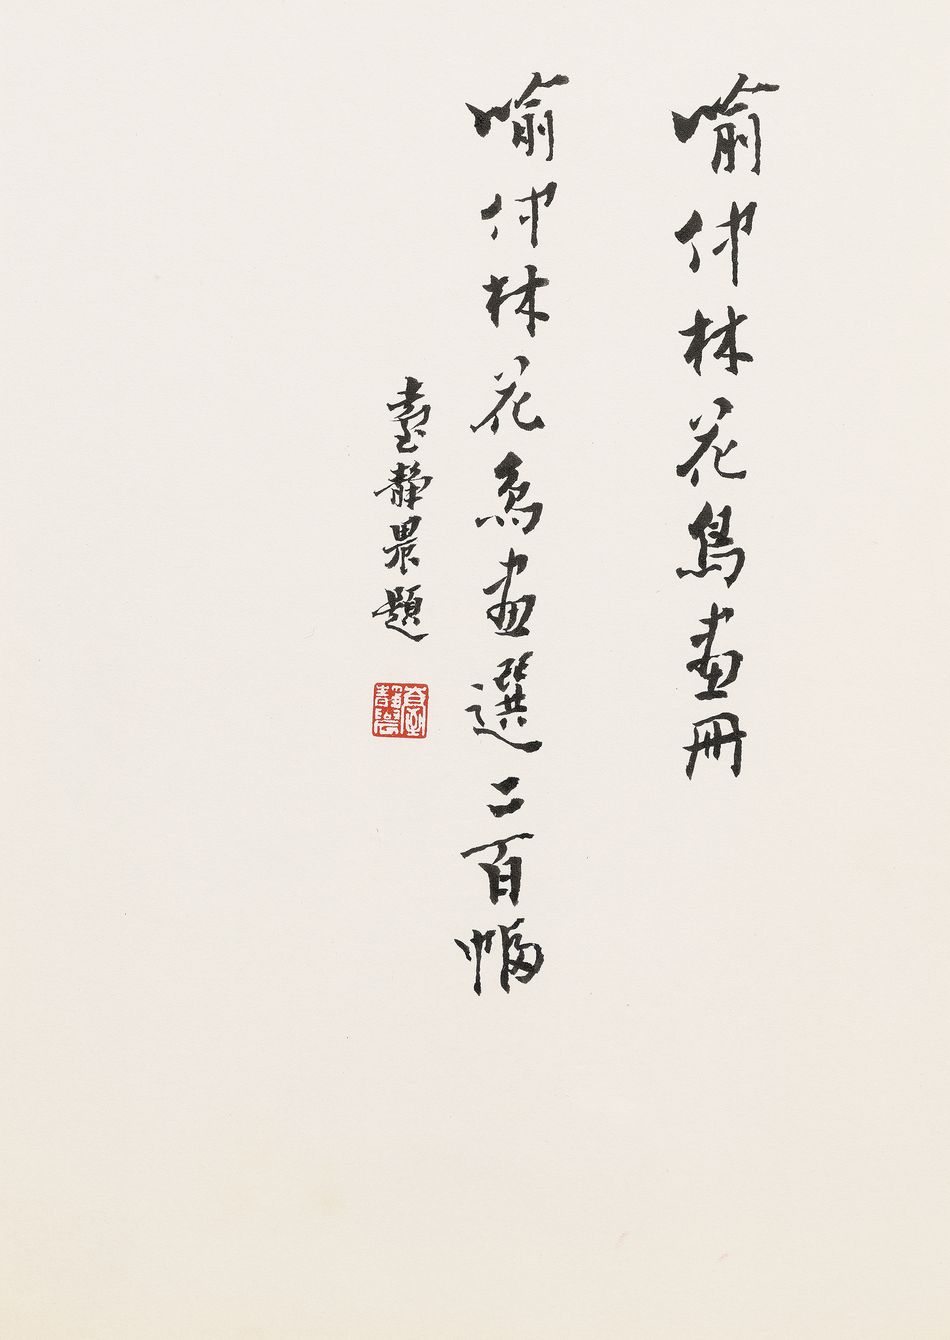 喻仲林花鳥畫冊
喻仲林花鳥畫選二百幅
臺靜農題
臺靜農